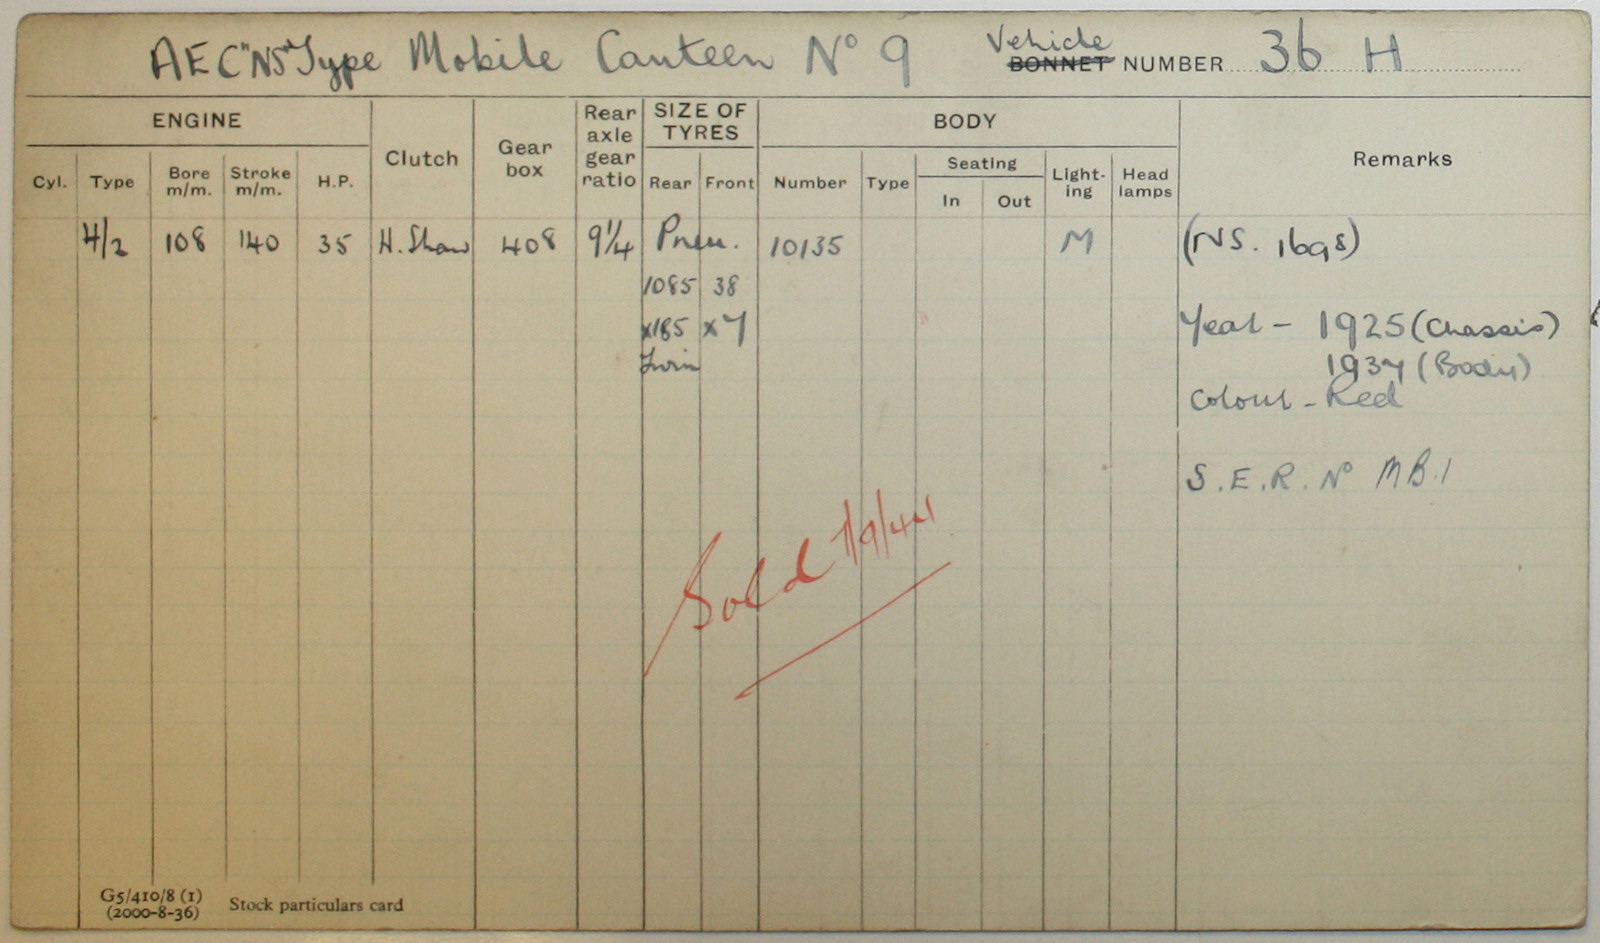 AEC "NS" Type Mobile Canteen No 9 Vehicle BONNET NUMBER 36 H
ENGINE Clutch Gear box Rear axle gear ratio SIZE OF TYRES BODY Remarks
Cyl. Type Bore m/m. Stroke m/m. H.P. Rear Front Number Type Seating In Out Light-ing Head lamps
4/2 108 140 35 H. Shaw 408 9 1/4 Pneu. 10135 M (NS. 1698)
1085 38
x185 x7 Year - 1925 (Chassis)
Twin 1937 (Body)
Colour - Red
S.E.R. No MB.1
Sold 1/9/44
G5/410/8 (1)
(2000-8-36) Stock particulars card